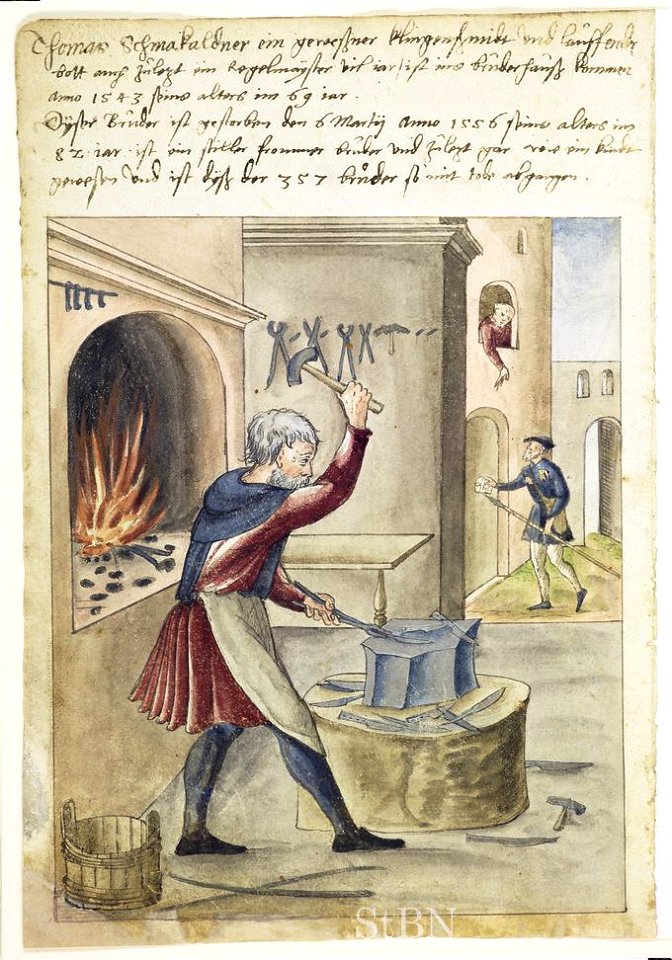 Thomas Schmakaldner ein geweßner klingenschmidt und lauffender
bott auch zulezt ein Kegelmayster vil jar, ist ins bruderhauß kommen
anno 1543 seins alters im 69 iar.
Dyser Bruder ist gestorben den 6 Martij Anno 1556 seins alters im
82 iar ist ein stiller frommer bruder und zulezt gar wie ein kindt
gewesen Und ist dyß der 357 bruder so mit tode abgangen.
StBN